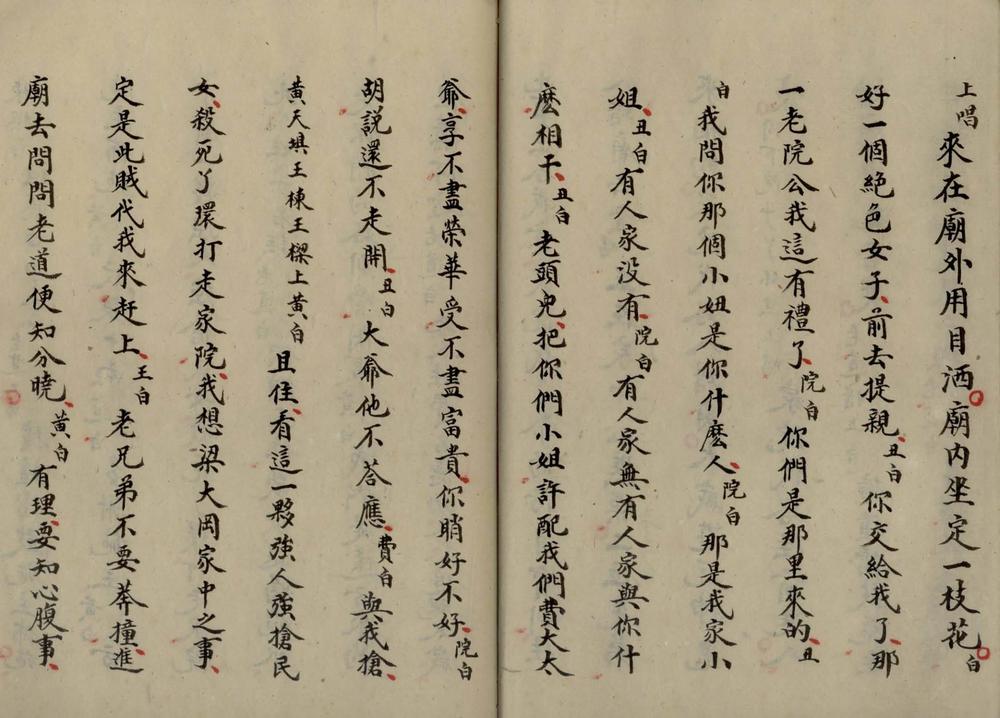 上唱 來在廟外用目洒廟內坐定一枝花 白
好一個絕色女子前去提親 丑白 你交給我了那
一老院公我這有禮了 院白 你們是那里來的 丑
白 我問你那個小妞是你什麽人 院白 那是我家小
姐 丑白 有人家沒有 院白 有人家無有人家與你什
麽相干 丑白 老頭兒把你們小姐許配我們費大太
爺享不盡榮華受不盡富貴你睄好不好 院白
胡說還不走開 丑白 大爺他不答應 費白 與我搶
黃天埧王棟王樑上黃白 且住看這一夥強人強搶民
女殺死丫環打走家院我想梁大岡家中之事
定是此賊代我來赶上 王白 老兄弟不要莽撞進
廟去問問老道便知分曉 黃白 有理要知心腹事